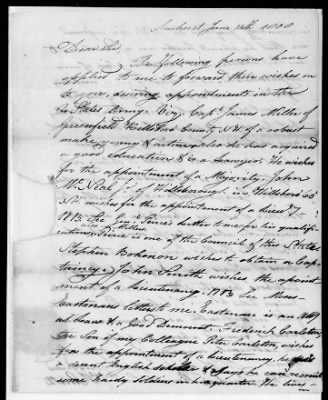 Amherst June 14th 1808
Dear Sir,
The following persons have
applied to me to forward their wishes
to you, desiring appointments in the
States Army. Viz, Capt James Miller of
Greenfield Hillsboro County, N H of a robust
make young & active also he has acquired
a good education & is a Lawyer. He wishes
for the appointment of a Majority. John
McNeal Jr of Hillsborough, in Hillsboro Co
wishes for the appointment of a
See Genl letter to me for his qualifi
cations, Pierce is one of the Council of this State
Stephen wishes to obtain a Cap
taincy. John Smith wishes the apoint
ment of a Lieutenancy. See
Eastmans letter to me. Eastman is an
& a good Democrat. Frederick Carleton,
the Son of my Colleague Peter Carleton, wishes
for the appointment of a Lieutenancy, he is
a decent English scholar & says he can enlist
some hardy soldiers in his quarter. He lives